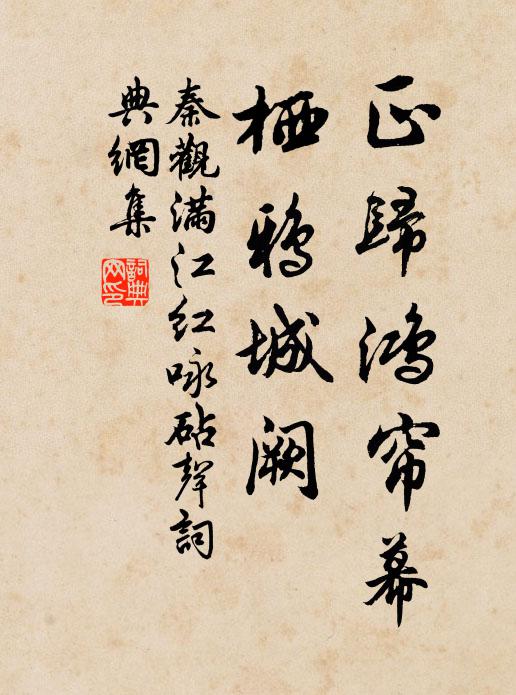 正歸鴻帘幕
栖鴉城阙
秦觀滿江红咏砧聲詞
典網集
詞典
网印